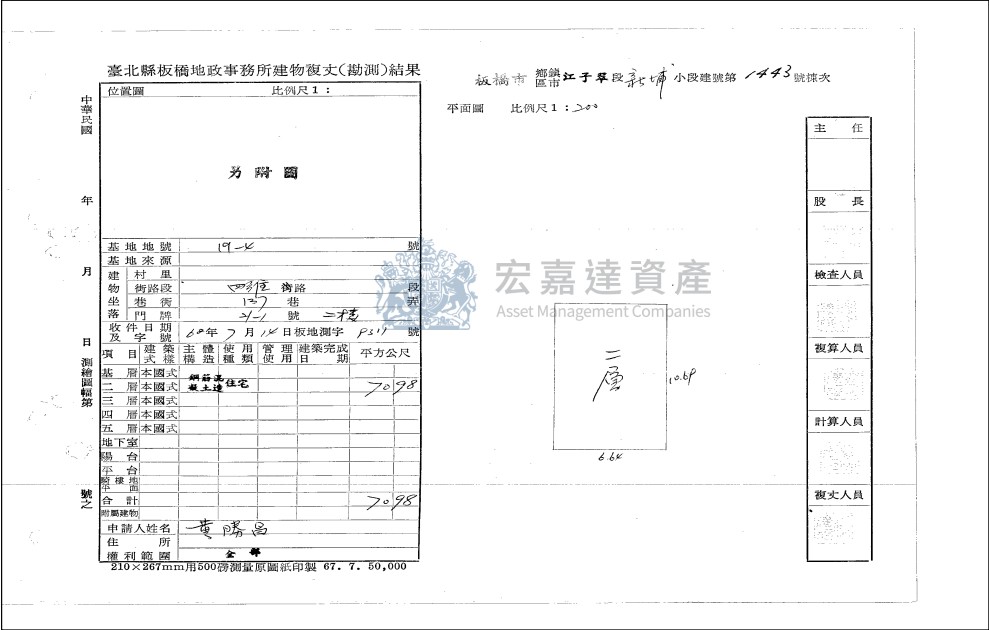 臺北縣板橋地政事務所建物複丈(勘測)結果
板橋市 鄉鎮區市 江子翠段 新埔 小段建號第 1443 號棟次
位置圖 比例尺1：
平面圖 比例尺1：200
中華民國 年 月 日 測繪圖幅第 號之
另附圖
基地地號 19-4 號
基地來源
建物坐落
村里
街路段 四維 街路 段
巷街 137 巷 弄
門牌 21-1 號 二樓
收件日期及字號 68年7月14日板地測字 9311 號
項目 建築式樣 主體構造 使用種類 管理使用 建築完成日期 平方公尺
基層 本國式
二層 本國式 鋼筋混凝土造 住宅 70 98
三層 本國式
四層 本國式
五層 本國式
地下室
陽台
平台
騎樓地平面
合計 70 98
附屬建物
申請人姓名 黃勝昌
住所
權利範圍 全部
210×267mm用500磅測量原圖紙印製 67. 7. 50,000
宏嘉達資產
Asset Management Companies
二層
10.69
6.64
主任
股長
檢查人員
複算人員
計算人員
複丈人員